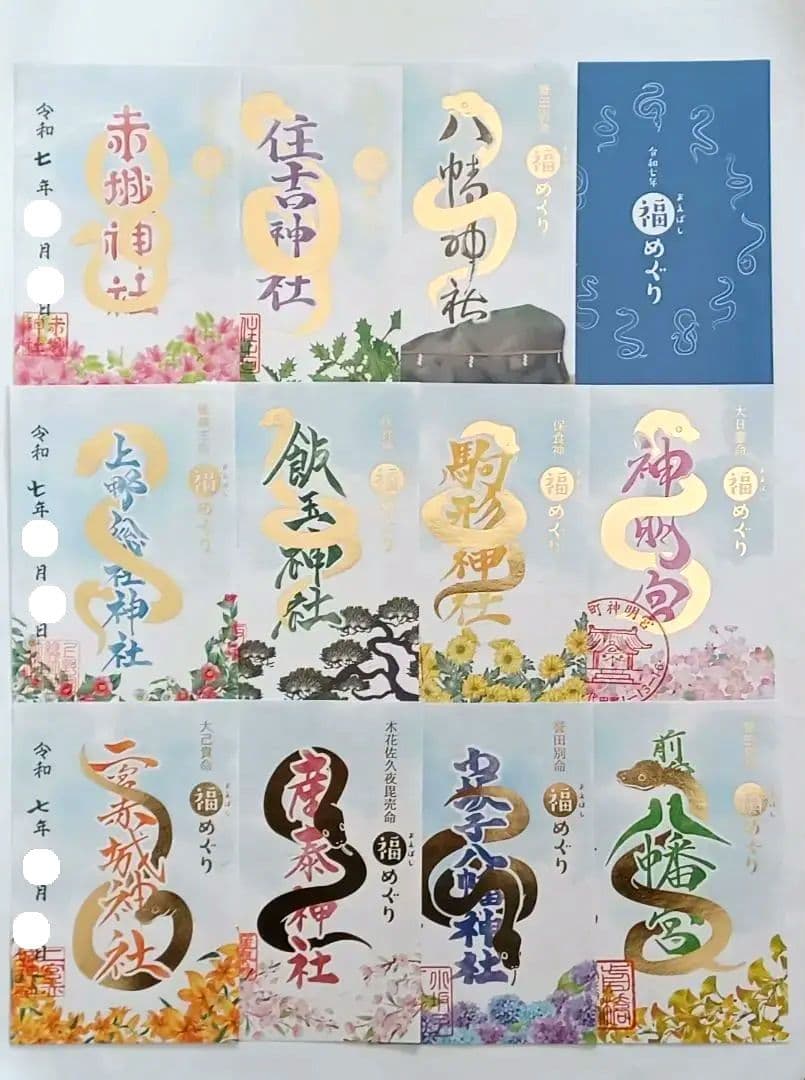 令和七年
月
日
赤城神社
赤城神社
住吉神社
住吉
誉田別命
福めぐり
八幡神社
令和七年
おまえばし
福めぐり
令和七年
月
日
上野総社神社
福めぐり
飯玉神社
福めぐり
保食神
福めぐり
駒形神社
大日孁命
福めぐり
神明宮
町神明宮
令和七年
月
日
大己貴命
福めぐり
二宮赤城神社
木花佐久夜毘売命
福めぐり
産泰神社
誉田別命
福めぐり
小坂子八幡神社
福めぐり
前橋八幡宮